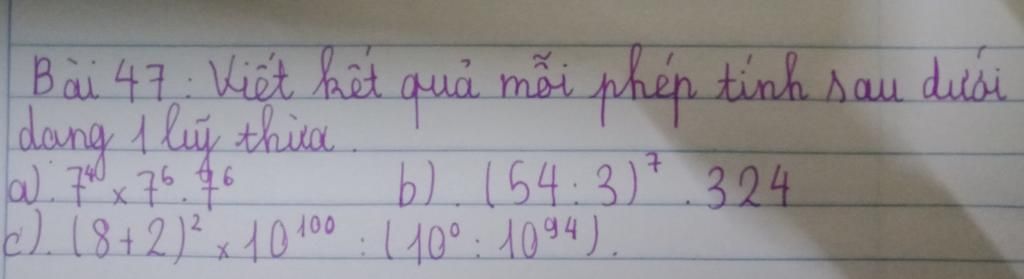 Bài 47: Viết kết quả mỗi phép tính sau dưới
dạng 1 luỹ thừa.
a). 7⁴ × 7⁶ . 7⁶ b). (54 : 3)⁷ . 324
c). (8+2)² × 10¹⁰⁰ : (10⁰ : 10⁹⁴).